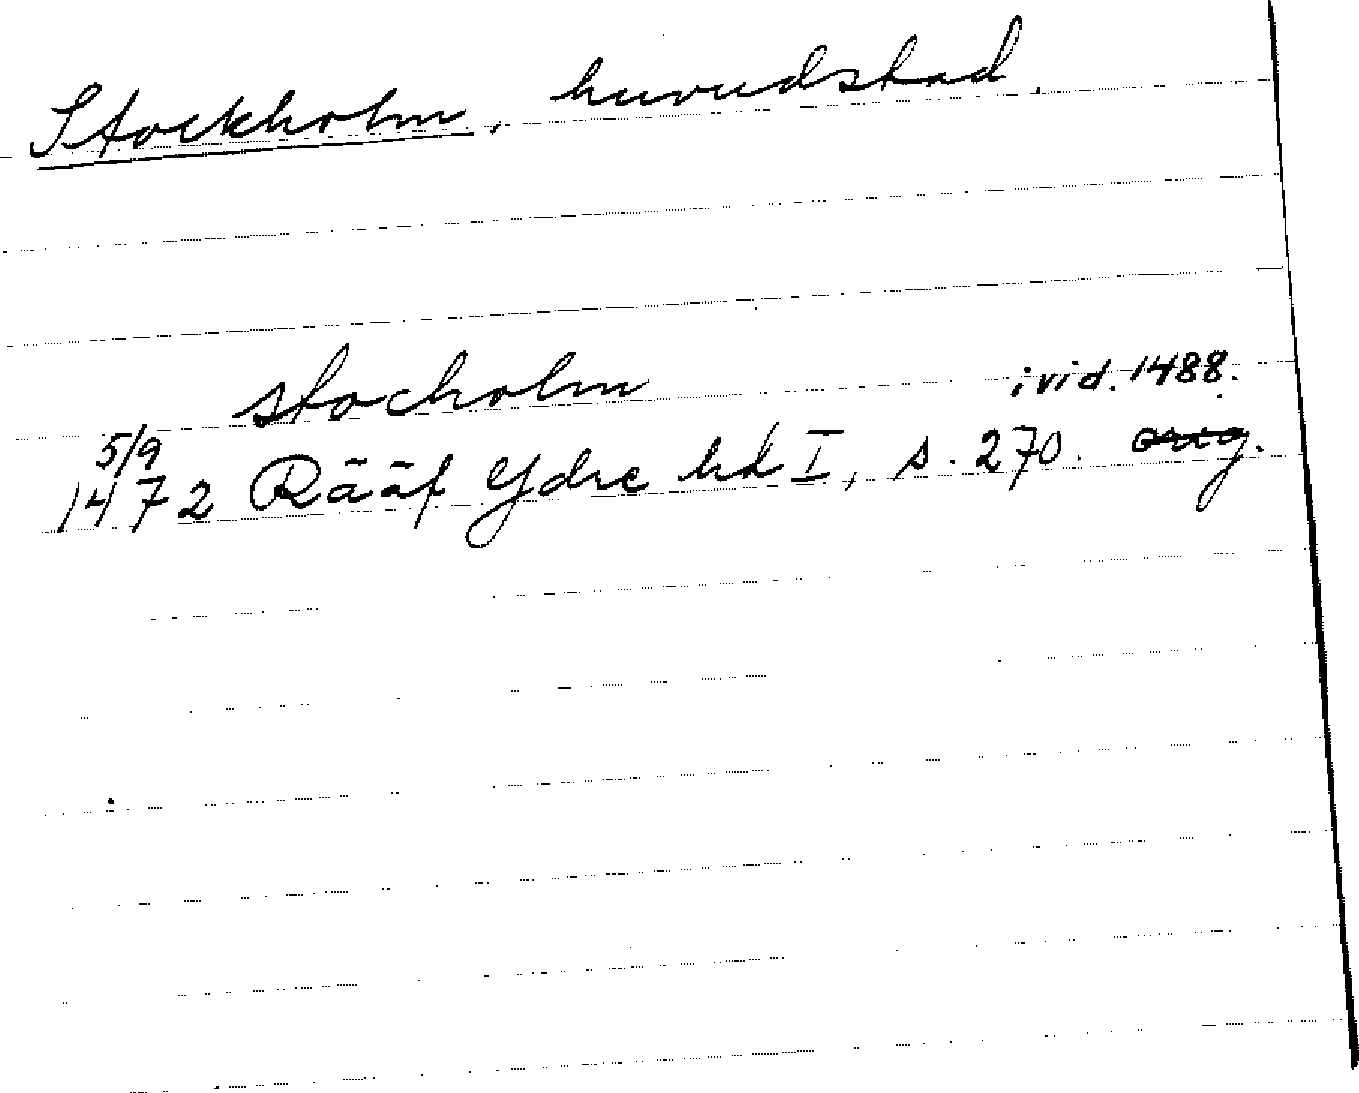 Stockholm, huvudstad.
stocholm i vid. 1488.
5/9
1472 Rääf Ydre hd I, s. 270. orig.